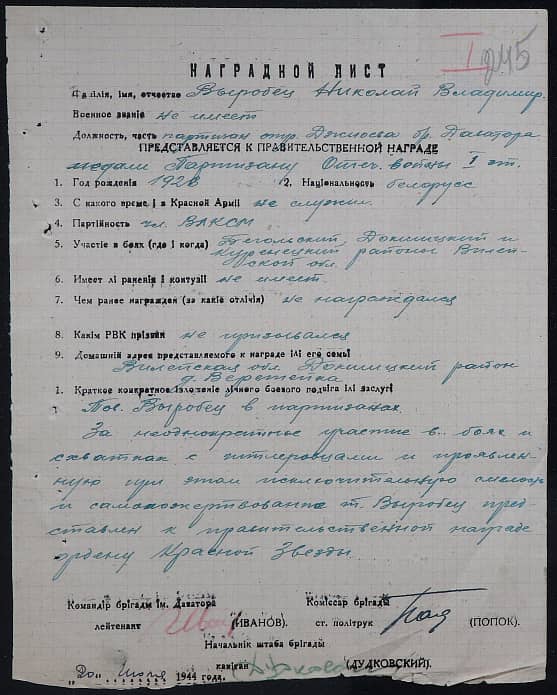 I 245
НАГРАДНОЙ ЛИСТ
Фамілія, імя, отчество Выробец Николай Владимир.
Военное званіе не имеет
Должность, часть партизан отр. бр. Даватора
ПРЕДСТАВЛЯЕТСЯ К ПРАВИТЕЛЬСТВЕННОЙ НАГРАДЕ
медали Партизану Отеч. войны I ст.
1. Год рождения 1926 2. Національность беларусс
3. С какого време 1 в Красной Армії не служил
4. Партійность чл. ВЛКСМ
5. Участіе в боях (где і когда) Бегомльский, Докшицкий и
Куренецкий районы Вилей-
ской обл.
6. Имеет лі раненія і контузії не имеет.
7. Чем ранее награжден (за какіе отлічія) не награждался
8. Какім РВК прізван не призывался
9. Домашній адрес представляемого к награде ілі его семьі
Вилейская обл. Докшицкий район
д. Веретейка
1. Краткое конкретное ізложеніе лічного боевого подвіга ілі заслугі
Тов. Выробец в партизанах
За неоднократные участие в боях и
схватках с гитлеровцами и проявлен-
ную при этом исключительную смелость
и самопожертвование т. Выробец пред-
ставлен к правительственной награде
ордену Красной Звезды.
Командір брігады ім. Даватора Комісcар брігады
лейтенант (ИВАНОВ). ст. політрук (ПОПОК).
Начальнік штаба брігады
капітан (ДУДКОВСКИЙ).
„20„ Июля 1944 года.